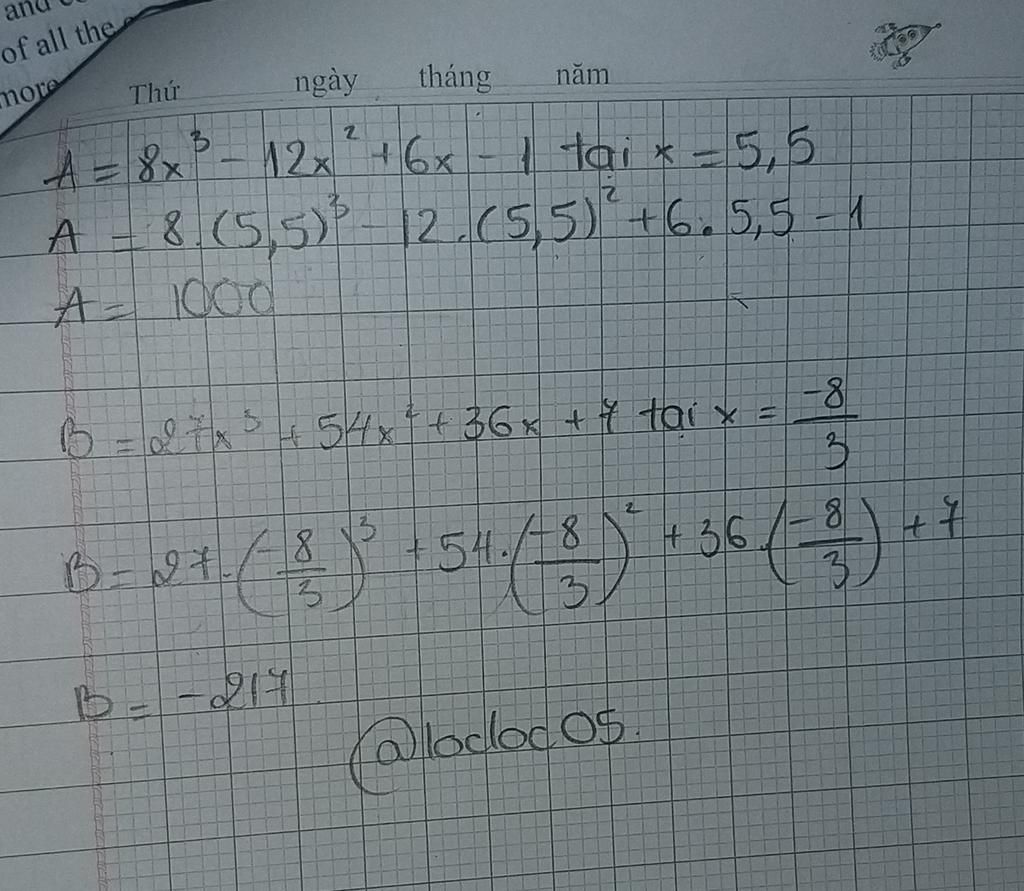 and
of all the
more
Thứ ngày tháng năm
A = 8x³ - 12x² + 6x - 1 tại x = 5,5
A = 8.(5,5)³ - 12.(5,5)² + 6.5,5 - 1
A = 1000
B = 27x³ + 54x² + 36x + 7 tại x = -8/3
B = 27.(-8/3)³ + 54.(-8/3)² + 36.(-8/3) + 7
B = -217
@locloc05.